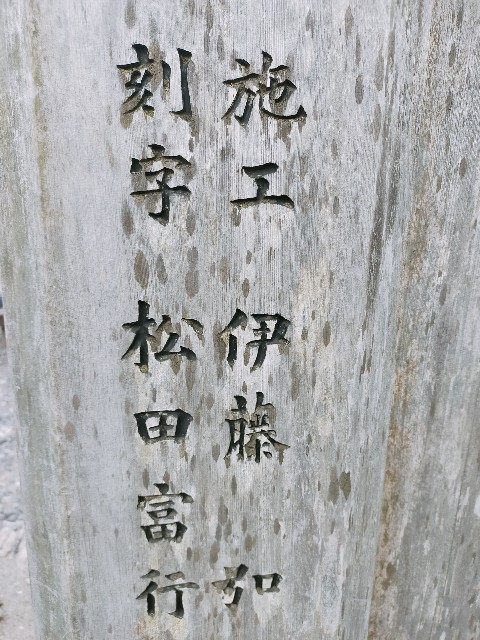 施工 伊藤 如
刻字 松田富行